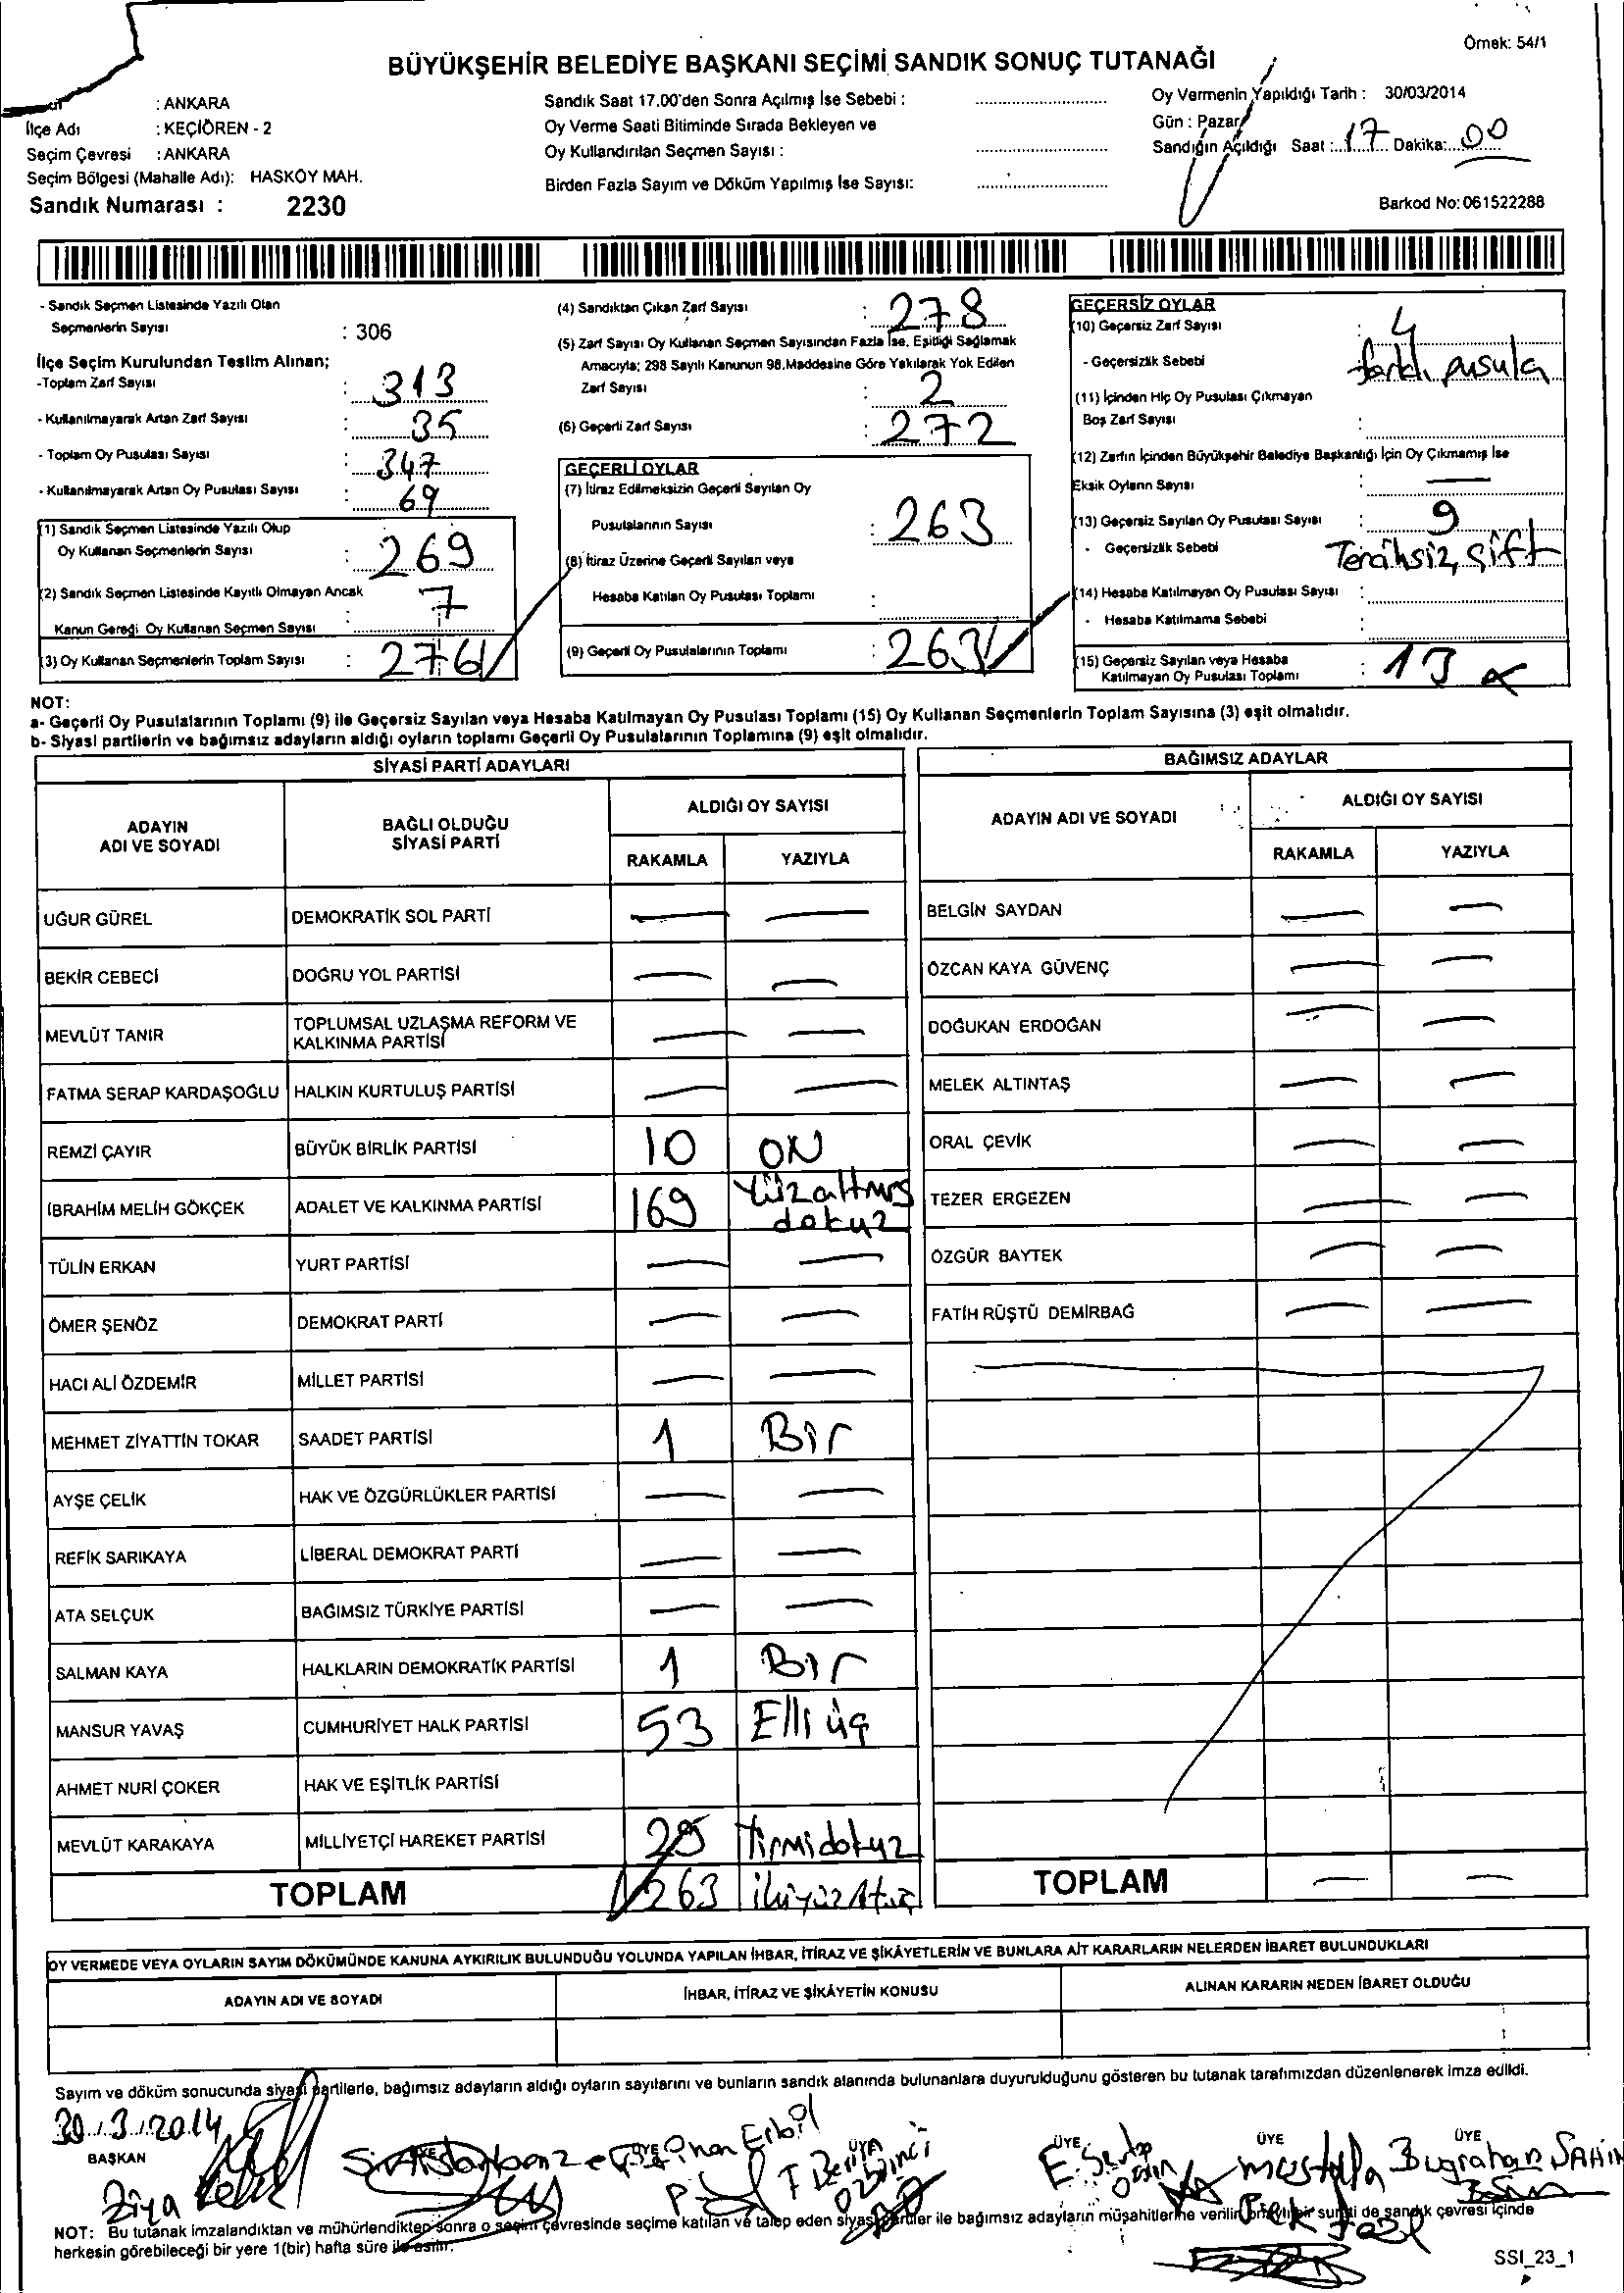 Örnek: 54/1
BÜYÜKŞEHİR BELEDİYE BAŞKANI SEÇİMİ SANDIK SONUÇ TUTANAĞI
: ANKARA
İlçe Adı : KEÇİÖREN - 2
Seçim Çevresi : ANKARA
Seçim Bölgesi (Mahalle Adı): HASKÖY MAH.
Sandık Numarası : 2230
Sandık Saat 17.00'den Sonra Açılmış İse Sebebi :
Oy Verme Saati Bitiminde Sırada Bekleyen ve
Oy Kullandırılan Seçmen Sayısı :
Birden Fazla Sayım ve Döküm Yapılmış İse Sayısı:
Oy Vermenin Yapıldığı Tarih : 30/03/2014
Gün : Pazar
Sandığın Açıldığı Saat : 17 Dakika: 00
Barkod No: 061522288
- Sandık Seçmen Listesinde Yazılı Olan
Seçmenlerin Sayısı : 306
İlçe Seçim Kurulundan Teslim Alınan;
-Toplam Zarf Sayısı : 313
- Kullanılmayarak Artan Zarf Sayısı : 35
- Toplam Oy Pusulası Sayısı : 347
- Kullanılmayarak Artan Oy Pusulası Sayısı : 69
(1) Sandık Seçmen Listesinde Yazılı Olup
Oy Kullanan Seçmenlerin Sayısı : 269
(2) Sandık Seçmen Listesinde Kayıtlı Olmayan Ancak
Kanun Gereği Oy Kullanan Seçmen Sayısı : 7
(3) Oy Kullanan Seçmenlerin Toplam Sayısı : 276
(4) Sandıktan Çıkan Zarf Sayısı : 278
(5) Zarf Sayısı Oy Kullanan Seçmen Sayısından Fazla İse, Eşitliği Sağlamak
Amacıyla; 298 Sayılı Kanunun 98.Maddesine Göre Yakılarak Yok Edilen
Zarf Sayısı : 2
(6) Geçerli Zarf Sayısı : 272
GEÇERLİ OYLAR
(7) İtiraz Edilmeksizin Geçerli Sayılan Oy
Pusulalarının Sayısı : 263
(8) İtiraz Üzerine Geçerli Sayılan veya
Hesaba Katılan Oy Pusulası Toplamı :
(9) Geçerli Oy Pusulalarının Toplamı : 263
GEÇERSİZ OYLAR
(10) Geçersiz Zarf Sayısı : 4
- Geçersizlik Sebebi farklı pusula
(11) İçinden Hiç Oy Pusulası Çıkmayan
Boş Zarf Sayısı :
(12) Zarfın İçinden Büyükşehir Belediye Başkanlığı İçin Oy Çıkmamış İse
Eksik Oyların Sayısı : —
(13) Geçersiz Sayılan Oy Pusulası Sayısı : 9
- Geçersizlik Sebebi Tercihsiz, çift
(14) Hesaba Katılmayan Oy Pusulası Sayısı :
- Hesaba Katılmama Sebebi :
(15) Geçersiz Sayılan veya Hesaba
Katılmayan Oy Pusulası Toplamı : 13
NOT:
a- Geçerli Oy Pusulalarının Toplamı (9) ile Geçersiz Sayılan veya Hesaba Katılmayan Oy Pusulası Toplamı (15) Oy Kullanan Seçmenlerin Toplam Sayısına (3) eşit olmalıdır.
b- Siyasi partilerin ve bağımsız adayların aldığı oyların toplamı Geçerli Oy Pusulalarının Toplamına (9) eşit olmalıdır.
SİYASİ PARTİ ADAYLARI
ADAYIN ADI VE SOYADI BAĞLI OLDUĞU SİYASİ PARTİ ALDIĞI OY SAYISI
RAKAMLA YAZIYLA
UĞUR GÜREL DEMOKRATİK SOL PARTİ — —
BEKİR CEBECİ DOĞRU YOL PARTİSİ — —
MEVLÜT TANIR TOPLUMSAL UZLAŞMA REFORM VE KALKINMA PARTİSİ — —
FATMA SERAP KARDAŞOĞLU HALKIN KURTULUŞ PARTİSİ — —
REMZİ ÇAYIR BÜYÜK BİRLİK PARTİSİ 10 ON
İBRAHİM MELİH GÖKÇEK ADALET VE KALKINMA PARTİSİ 169 Yüzaltmış dokuz
TÜLİN ERKAN YURT PARTİSİ — —
ÖMER ŞENÖZ DEMOKRAT PARTİ — —
HACI ALİ ÖZDEMİR MİLLET PARTİSİ — —
MEHMET ZİYATTİN TOKAR SAADET PARTİSİ 1 Bir
AYŞE ÇELİK HAK VE ÖZGÜRLÜKLER PARTİSİ — —
REFİK SARIKAYA LİBERAL DEMOKRAT PARTİ — —
ATA SELÇUK BAĞIMSIZ TÜRKİYE PARTİSİ — —
SALMAN KAYA HALKLARIN DEMOKRATİK PARTİSİ 1 Bir
MANSUR YAVAŞ CUMHURİYET HALK PARTİSİ 53 Elli üç
AHMET NURİ ÇOKER HAK VE EŞİTLİK PARTİSİ
MEVLÜT KARAKAYA MİLLİYETÇİ HAREKET PARTİSİ 29 Yirmidokuz
TOPLAM 263
BAĞIMSIZ ADAYLAR
ADAYIN ADI VE SOYADI ALDIĞI OY SAYISI
RAKAMLA YAZIYLA
BELGİN SAYDAN — —
ÖZCAN KAYA GÜVENÇ — —
DOĞUKAN ERDOĞAN — —
MELEK ALTINTAŞ — —
ORAL ÇEVİK — —
TEZER ERGEZEN — —
ÖZGÜR BAYTEK — —
FATİH RÜŞTÜ DEMİRBAĞ — —
TOPLAM — —
OY VERMEDE VEYA OYLARIN SAYIM DÖKÜMÜNDE KANUNA AYKIRILIK BULUNDUĞU YOLUNDA YAPILAN İHBAR, İTİRAZ VE ŞİKÂYETLERİN VE BUNLARA AİT KARARLARIN NELERDEN İBARET BULUNDUKLARI
ADAYIN ADI VE SOYADI İHBAR, İTİRAZ VE ŞİKÂYETİN KONUSU ALINAN KARARIN NEDEN İBARET OLDUĞU
Sayım ve döküm sonucunda siyasi partilerle, bağımsız adayların aldığı oyların sayılarını ve bunların sandık alanında bulunanlara duyurulduğunu gösteren bu tutanak tarafımızdan düzenlenerek imza edildi.
30.3.2014
BAŞKAN ÜYE ÜYE ÜYE ÜYE ÜYE ÜYE
Ziya
Erbil
Mustafa
Buğrahan ŞAHİN
NOT: Bu tutanak imzalandıktan ve mühürlendikten sonra o seçim çevresinde seçime katılan ve talep eden siyasi partiler ile bağımsız adayların müşahitlerine verilir, onaylı bir sureti de sandık çevresi içinde
herkesin görebileceği bir yere 1(bir) hafta süre ile asılır.
SSI_23_1